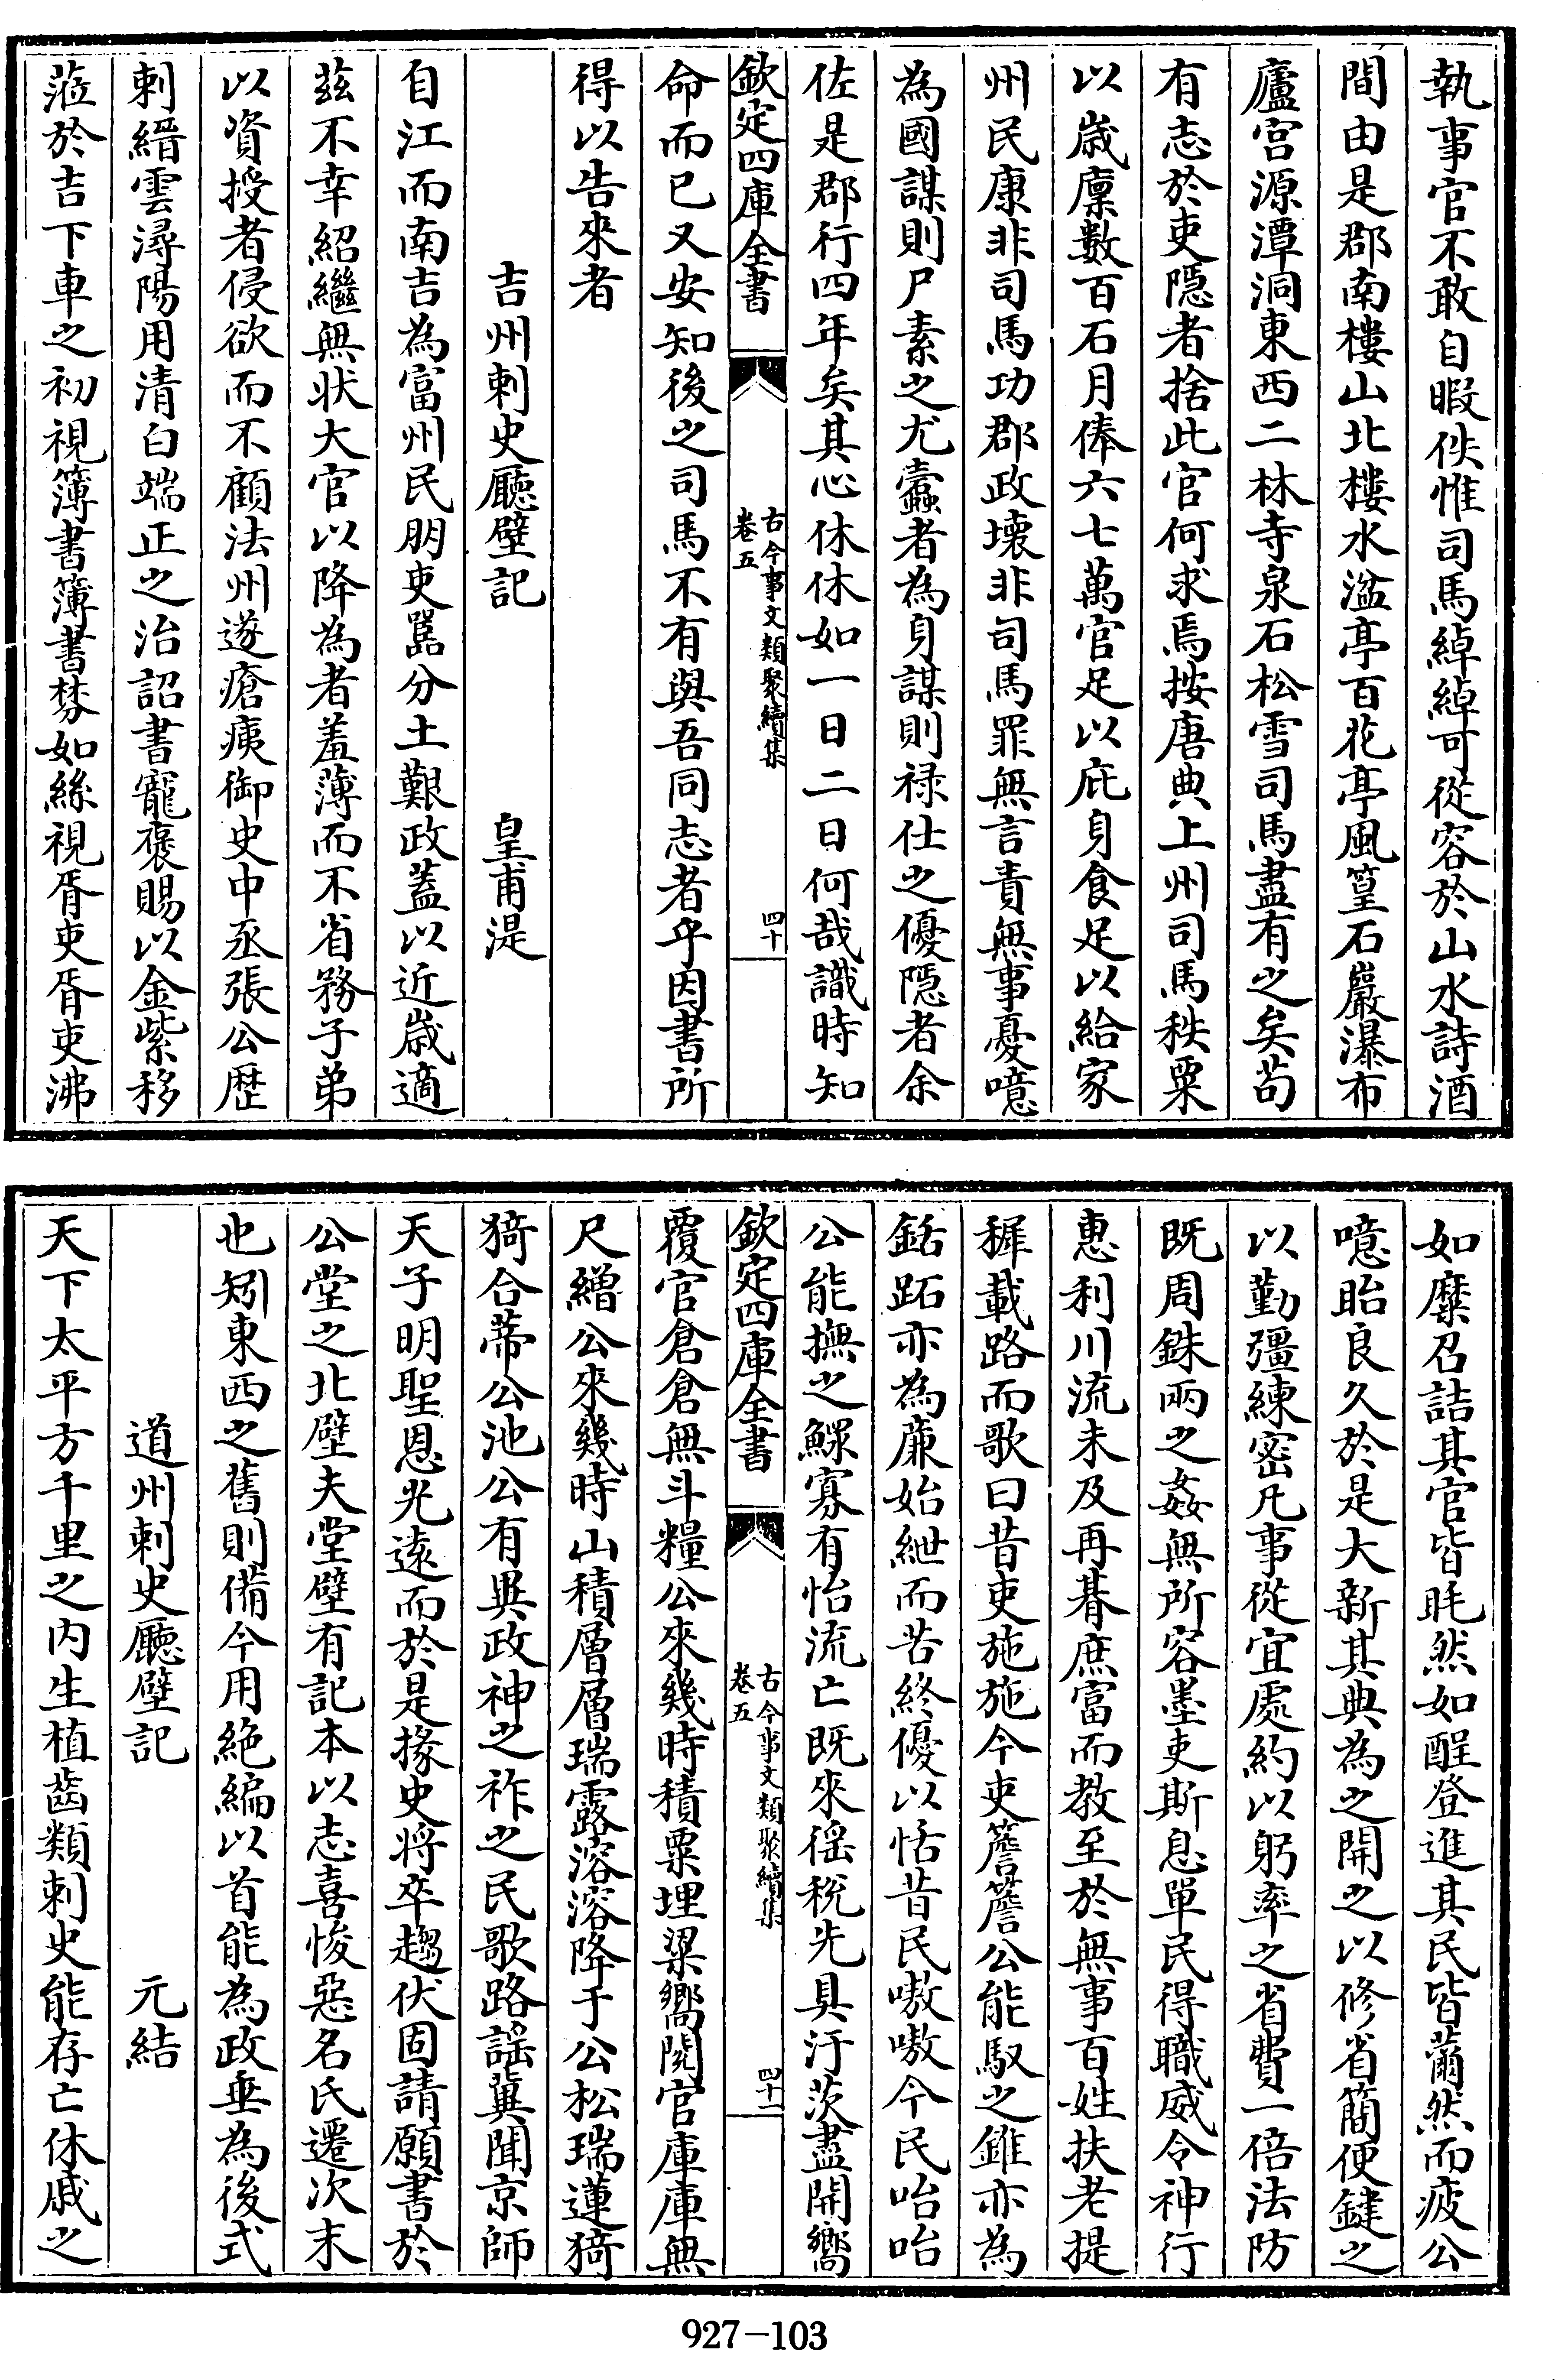 執事官不敢自暇佚惟司馬綽綽可從容於山水詩酒
間由是郡南樓山北樓水湓亭百花亭風篁石巖瀑布
廬宫源潭洞東西二林寺泉石松雪司馬盡有之矣苟
有志於吏隠者捨此官何求焉按唐典上州司馬秩粟
以歳廪數百石月俸六七萬官足以庇身食足以給家
州民康非司馬功郡政壊非司馬罪無言責無事憂噫
為國謀則尸素之尤蠹者為身謀則禄仕之優隠者余
佐是郡行四年矣其心休休如一日二日何哉識時知
欽定四庫全書
古今事文類聚續集
卷五
四十
命而已又安知後之司馬不有與吾同志者乎因書所
得以告來者
吉州刺史廳壁記 皇甫湜
自江而南吉為富州民朋吏嚚分土艱政蓋以近歳適
兹不幸紹繼無状大官以降為者羞薄而不省務子弟
以資授者侵欲而不顧法州遂瘡痍御史中丞張公歴
刺縉雲潯陽用清白端正之治詔書寵褒賜以金紫移
蒞於吉下車之初視簿書簿書棼如絲視胥吏胥吏沸
如糜召詰其官皆眊然如酲登進其民皆薾然而疲公
噫眙良久於是大新其典為之開之以修省簡便鍵之
以勤彊練密凡事從宜處約以躬率之省費一倍法防
既周銖兩之姦無所容墨吏斯息單民得職威令神行
惠利川流未及再朞庶富而教至於無事百姓扶老提
穉載路而歌曰昔吏施施今吏簷簷公能馭之錐亦為
銛跖亦為亷始紲而苦終優以恬昔民嗷嗷今民咍咍
公能撫之鰥寡有怡流亡既來徭稅先具汙茨盡開嚮
欽定四庫全書
古今事文類聚續集
卷五
四十一
覆官倉倉無斗糧公來幾時積粟埋梁嚮閲官庫庫無
尺繒公來幾時山積層層瑞露溶溶降于公松瑞蓮猗
猗合蒂公池公有異政神之祚之民歌路謡冀聞京師
天子明聖恩光遠而於是掾史将卒趨伏固請願書於
公堂之北壁夫堂壁有記本以志喜悛惡名氏遷次末
也矧東西之舊則備今用絶編以首能為政垂為後式
道州刺史廳壁記 元結
天下太平方千里之内生植齒類刺史能存亡休戚之
927-103